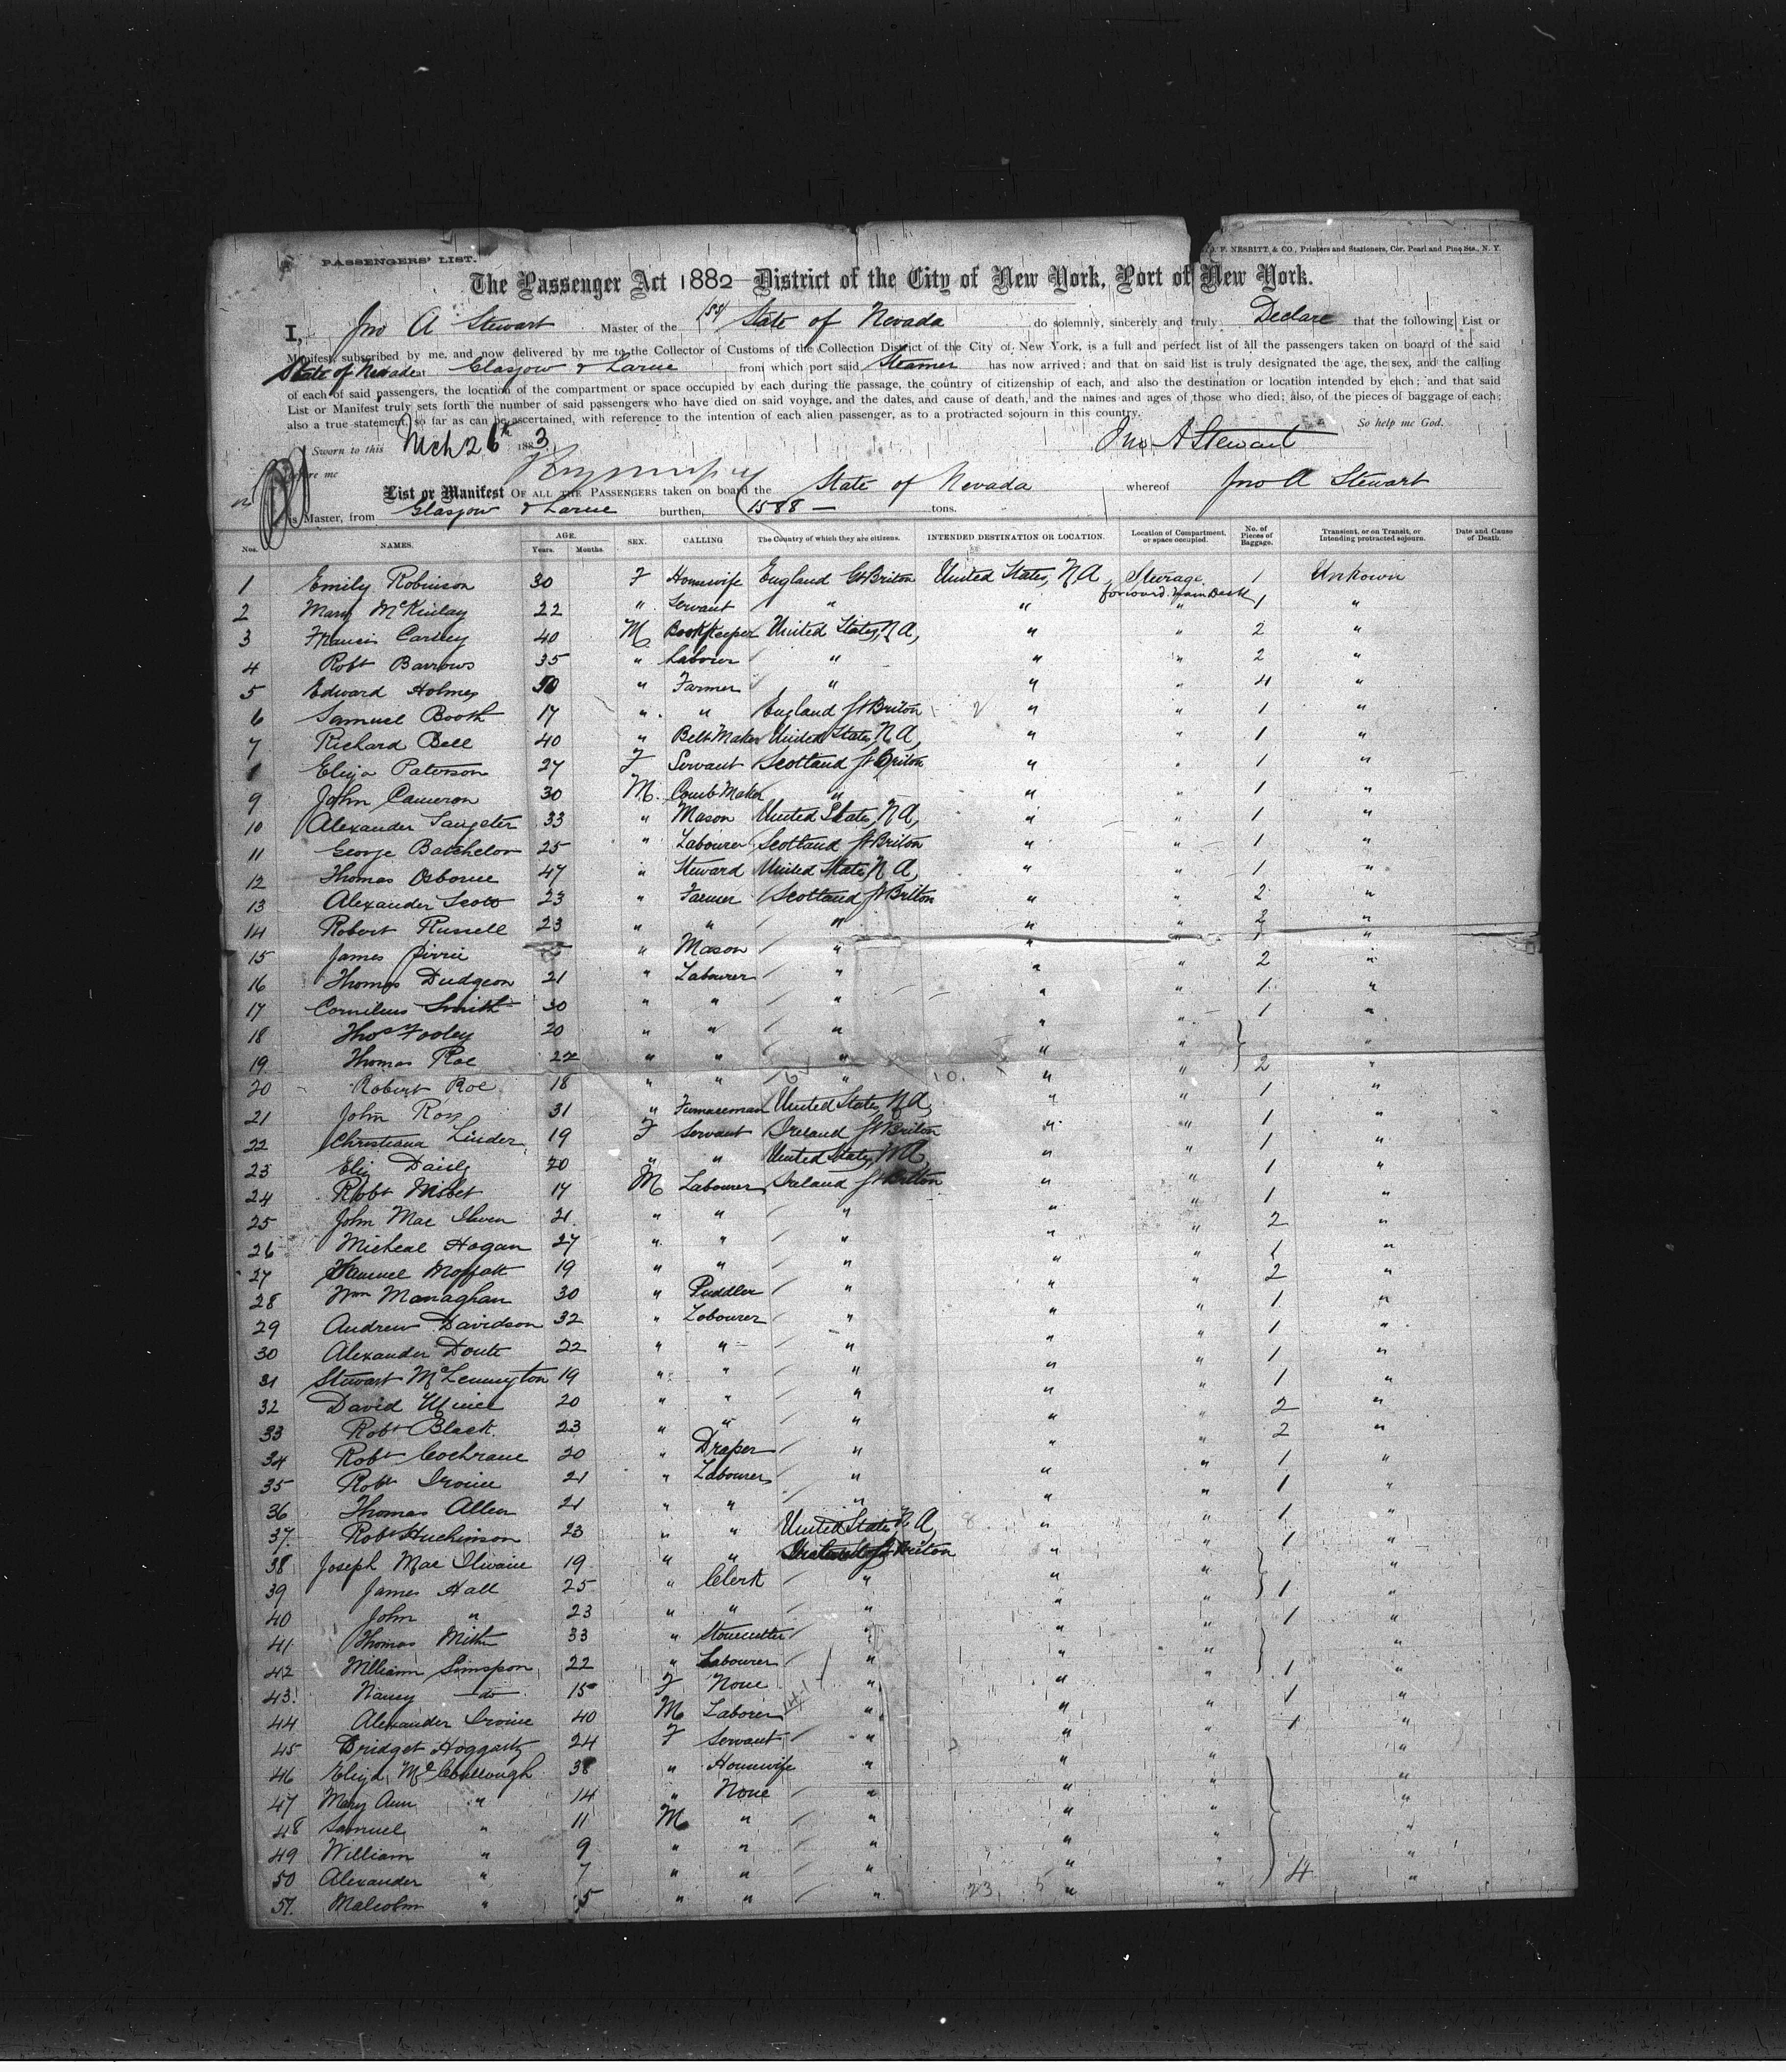 J. F. NESBITT, & CO., Printers and Stationers, Cor. Pearl and Pine Sts., N. Y.
PASSENGERS' LIST.
The Passenger Act 1882 District of the City of New York, Port of New York.
I, Jno A Stewart Master of the SS State of Nevada do solemnly, sincerely and truly Declare that the following List or
Manifest, subscribed by me, and now delivered by me to the Collector of Customs of the Collection District of the City of New York, is a full and perfect list of all the passengers taken on board of the said
State of Nevada Glasgow & Larne from which port said Steamer has now arrived; and that on said list is truly designated the age, the sex, and the calling
of each of said passengers, the location of the compartment or space occupied by each during the passage, the country of citizenship of each, and also the destination or location intended by each; and that said
List or Manifest truly sets forth the number of said passengers who have died on said voyage, and the dates, and cause of death, and the names and ages of those who died; also, of the pieces of baggage of each;
also a true statement, so far as can be ascertained, with reference to the intention of each alien passenger, as to a protracted sojourn in this country. So help me God.
Sworn to this Mch 26th 1883 Jno A Stewart
before me
List or Manifest OF ALL THE PASSENGERS taken on board the State of Nevada whereof Jno A Stewart
is Master, from Glasgow & Larne burthen, 1588 — tons.
Nos. NAMES. AGE. Years. Months. SEX. CALLING The Country of which they are citizens. INTENDED DESTINATION OR LOCATION. Location of Compartment, or space occupied. No. of Pieces of Baggage. Transient, or on Transit, or Intending protracted sojourn. Date and Cause of Death.
1 Emily Robinson 30 F Housewife England Gt Briton United States, N A Steerage forward Main Deck 1 Unkown
2 Mary McKinlay 22 " Servant " " " 1 "
3 Francis Carley 40 M Bookkeeper United States, N A, " " 2 "
4 Robt Barrows 35 " Labourer " " " 2 "
5 Edward Holmes 50 " Farmer " " " 4 "
6 Samuel Booth 17 " " England Gt Briton " " 1 "
7 Richard Bell 40 " Belt Maker United States, N A, " " 1 "
8 Eliza Paterson 27 F Servant Scotland Gt Briton " " 1 "
9 John Cameron 30 M. Comb Maker " " " 1 "
10 Alexander Sangster 33 " Mason United States, N A, " " 1 "
11 George Batchelor 25 " Labourer Scotland Gt Briton " " 1 "
12 Thomas Osborne 47 " Steward United States, N A, " " 1 "
13 Alexander Scott 23 " Farmer Scotland Gt Briton " " 2 "
14 Robert Russell 23 " " " " " 2 "
15 James Pirrie " Mason " " " 2 "
16 Thomas Dudgeon 21 " Labourer " " " 1 "
17 Cornelius Smith 30 " " " " " 1 "
18 Thos Fooley 20 " " " " " "
19 Thomas Roe 22 " " " " " 2 "
20 Robert Roe 18 " " " " " 1 "
21 John Ross 31 " Furnaceman United States, N A, " " 1 "
22 Christiana Linder 19 F Servant Ireland Gt Briton " " 1 "
23 Eliz Daisly 20 " " United States, N A, " " 1 "
24 Robt Nisbet 17 M Labourer Ireland Gt Briton " " 1 "
25 John Mac Ilwen 21 " " " " " 2 "
26 Micheal Hogan 27 " " " " " 1 "
27 Samuel Moffatt 19 " " " " " 2 "
28 Wm Managhan 30 " Puddler " " " 1 "
29 Andrew Davidson 32 " Labourer " " " 1 "
30 Alexander Doute 22 " " " " " 1 "
31 Stewart McLennington 19 " " " " " 1 "
32 David 20 " " " " " 2 "
33 Robt Black 23 " " " " " 2 "
34 Robt Cochrane 20 " Draper " " " 1 "
35 Robt Irvine 21 " Labourer " " " 1 "
36 Thomas Allen 21 " " " " " 1 "
37. Robt Huchinson 23 " " United States, N A, " " 1 "
38 Joseph Mac Ilwaine 19 " " Ireland Gt Briton " " "
39 James Hall 25 " Clerk " " " 1 "
40 John " 23 " " " " " 1 "
41 Thomas 33 " Stonecutter " " " "
42 William Simspon 22 " Labourer " " " 1 "
43. Nancy —do— 15 F None " " " 1 "
44 Alexander Irvine 40 M Laborer " " " 1 "
45 Bridget Hoggarty 24 F Servant " " " "
46 Eliza McCullough 38 " Housewife " " " "
47 Mary Ann " 14 " None " " " "
48 Samuel " 11 M " " " " "
49 William " 9 " " " " " "
50 Alexander " 7 " " " " " 4 "
51. Malcolm " 5 " " " " "